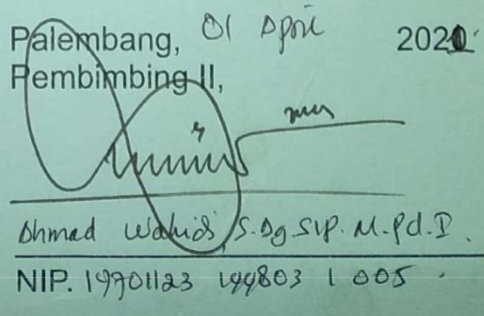 Palembang, 01 April 2021
Pembimbing II,
Ahmad Wahidi, S.Ag. SIP. M.Pd.I.
NIP. 19701123 199803 1 005